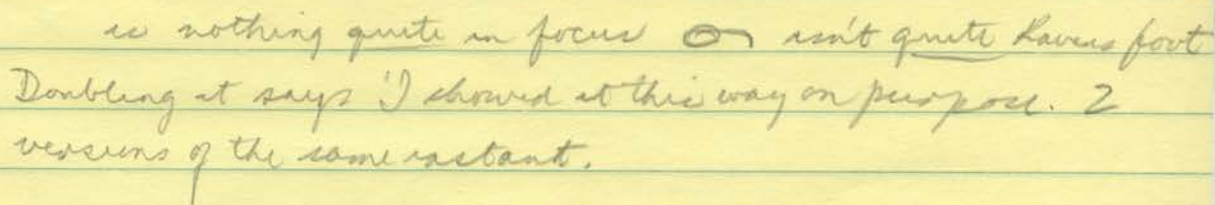 is nothing quite in focus isn't quite Ravens foot
Doubling it says 'I showed it this way on purpose. 2
versions of the same instant.